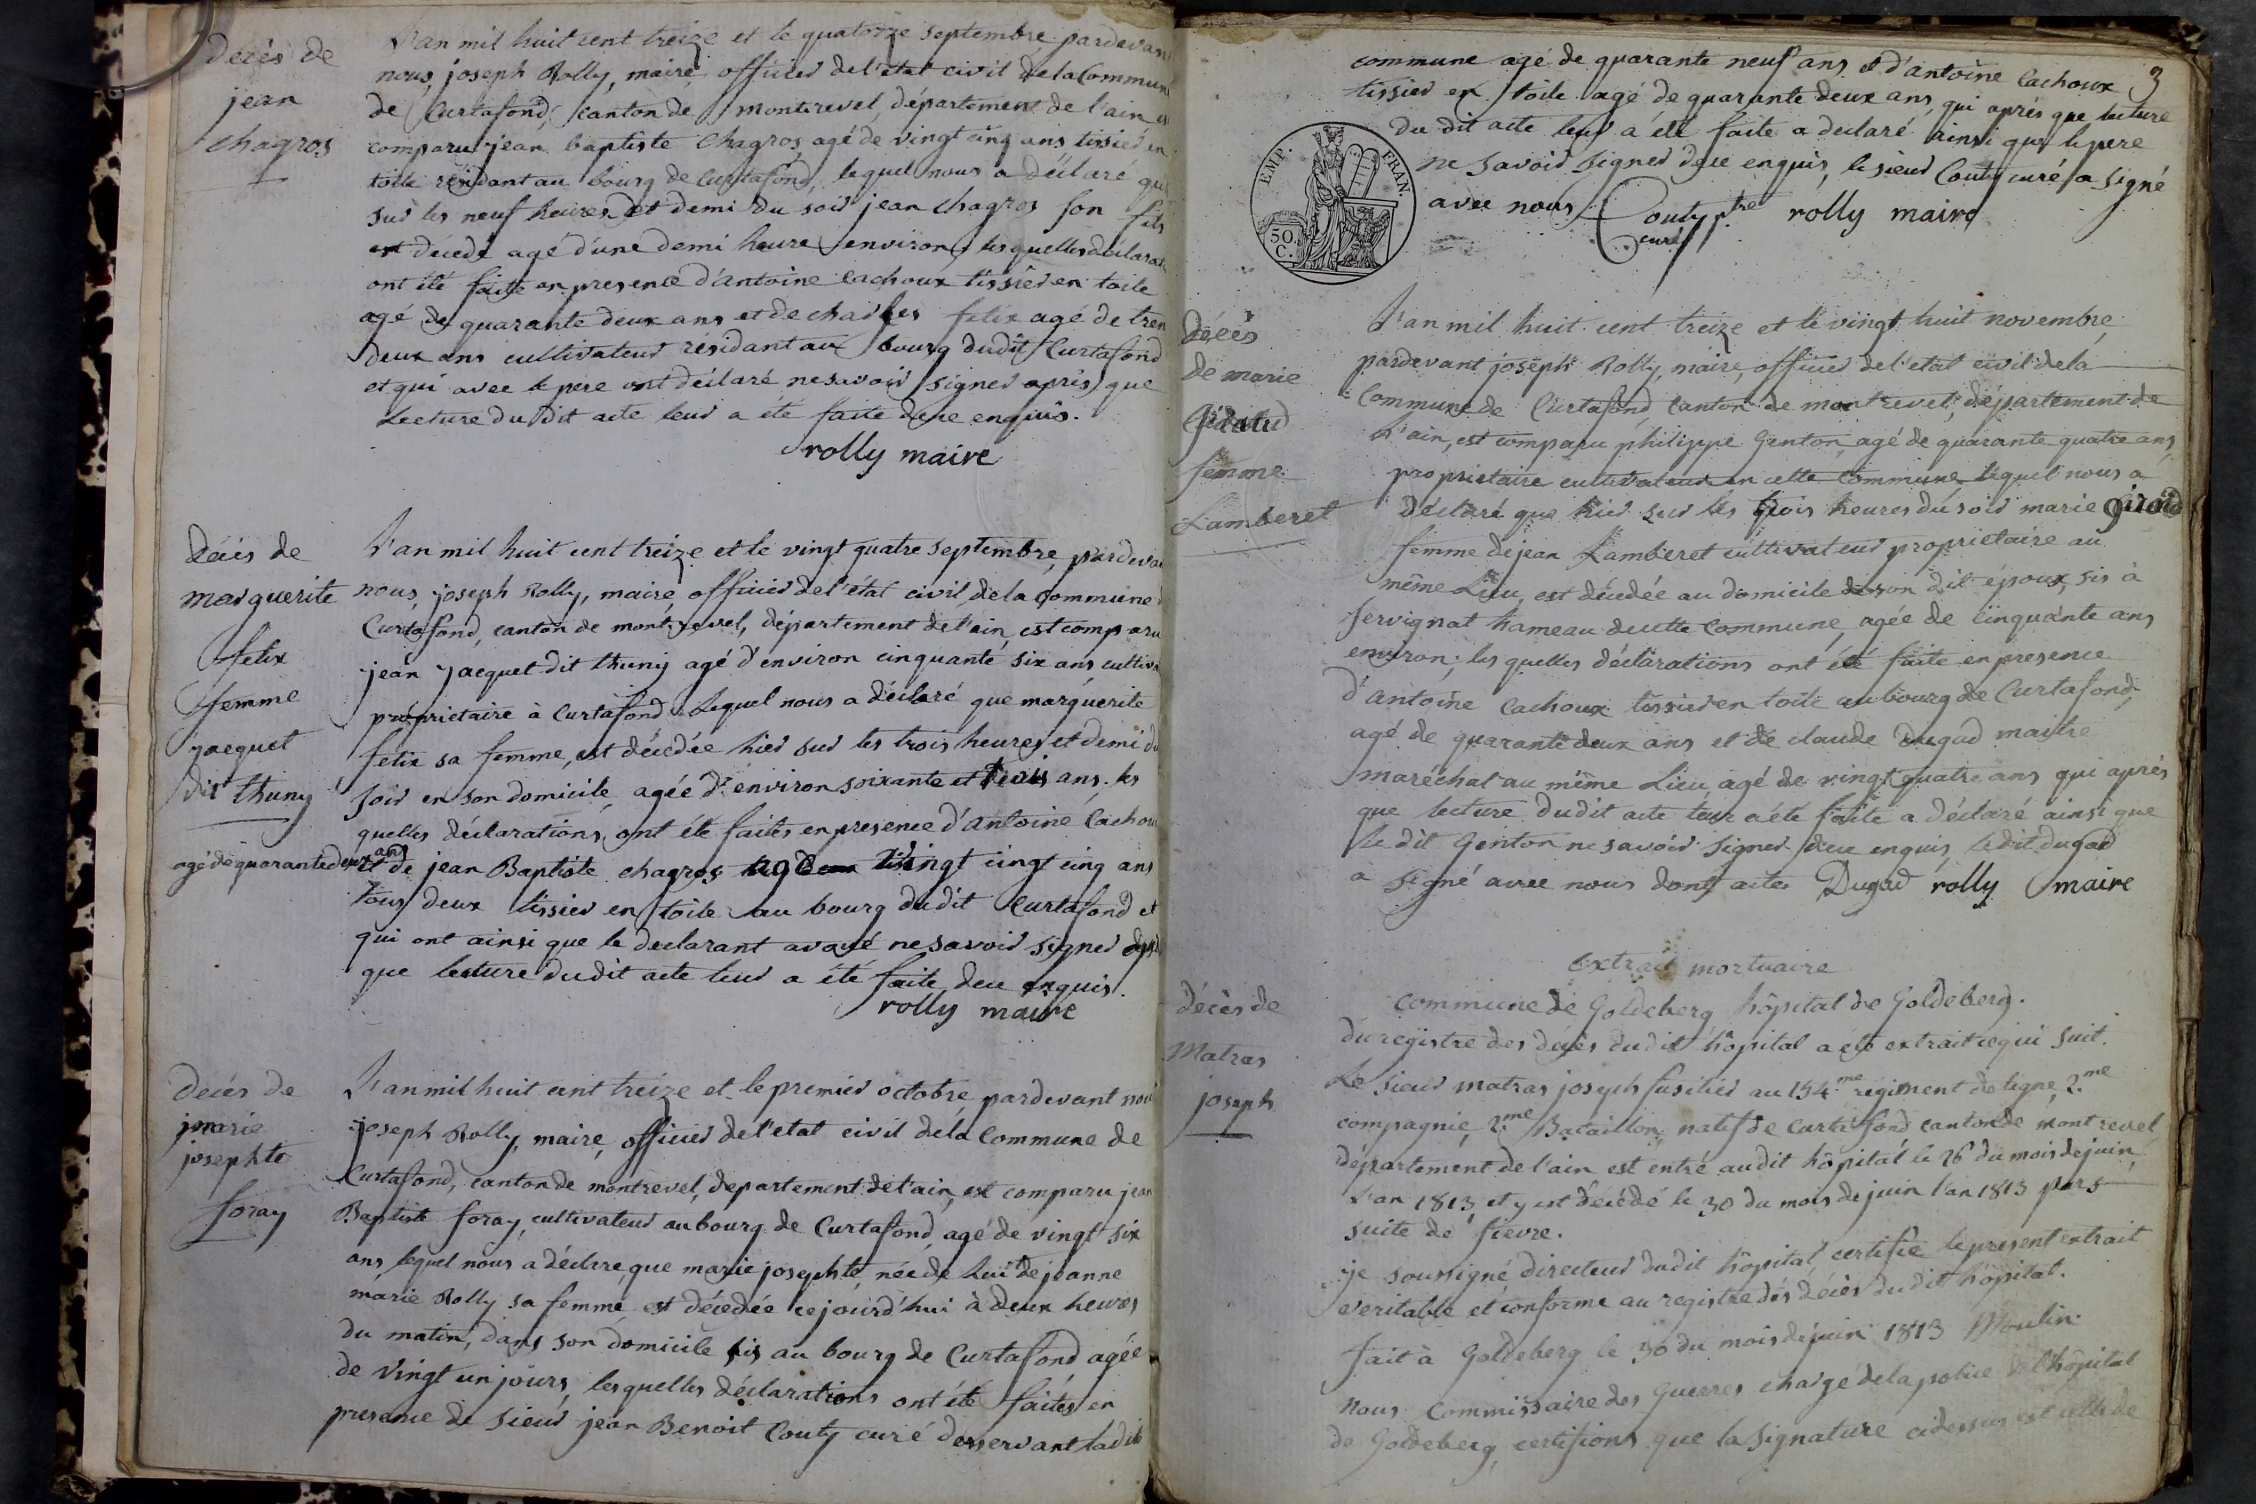 décès de
jean
chagros
L'an mil huit cent treize et le quatorze septembre pardevan
nous, joseph Rolly, maire officier de l'état civil de la Commun
de Curtafond, Canton de Montrevel, département de l'ain
comparu jean baptiste Chagros agé de vingt cinq ans tissier en
toile residant au bourg de Curtafond, lequel nous a déclaré qu
sur les neuf heures et demi du soir jean Chagros son fils
est décédé agé d'une demi heure environ, les quelles déclarat
ont été faite en presence d'antoine Cachoux tissier en toile
agé de quarante deux ans et de charles felix agé de tren
deux ans cultivateur residant au bourg dudit Curtafond
et qui avec le père ont déclaré ne savoir signer après que
Lecture du dit acte leur a été faite de ce enquis.
rolly maire
décès de
marguerite
felix
femme
jacquet
dit thuny
L'an mil huit cent treize et le vingt quatre septembre, pardevan
nous, joseph Rolly, maire officier de l'état civil de la Commune
Curtafond, canton de montrevel, département de l'ain, est comparu
jean jacquet dit thuny agé d'environ cinquante six ans, cultiva
propriétaire à Curtafond Lequel nous a déclaré que marguerite
felix sa femme, est décédée hier sur les trois heures et demi du
soir en son domicile agée d'environ soixante et trois ans. les
quelles déclarations, ont été faites en presence d'antoine Cachou
agé de quarante deux ans
et de jean Baptiste chagros vingt cinq ans
tous deux tissier en toile au bourg dudit Curtafond et
qui ont ainsi que le declarant avoué ne savoir signer
que lecture dudit acte leur a été faite, de ce enquis.
rolly maire
décès de
marie
josephte
foray
L'an mil huit cent treize et le premier octobre pardevant nous
joseph Rolly, maire, officier de l'etat civil de la Commune de
Curtafond, canton de montrevel, departement de l'ain, est comparu jean
Baptiste foray, cultivateur au bourg de Curtafond agé de vingt six
ans lequel nous a déclaré que marie josephte née de lui et de jeanne
marie Rolly sa femme est décédée cejourd'hui à deux heures
du matin, dans son domicile sis au bourg de Curtafond agée
de vingt un jours, lesquelles déclarations ont été faites en
presence de sieur jean Benoit Couty curé desservant ladite
3
commune agé de quarante neuf ans et d'antoine Cachoux
tissier en toile agé de quarante deux ans, qui après que lecture
du dit acte leur a été faite a declaré ainsi que le pere
ne savoir signer de ce enquis, le sieur Couty curé a signé
avec nous Couty ptre rolly maire
curé
EMP. FRAN.
50.
C.
décès
de marie
femme
Lamberet
L'an mil huit cent treize et le vingt huit novembre,
pardevant joseph Rolly, maire, officier de l'etat civil de la
Commune de Curtafond, Canton de montrevel, département de
l'ain, est comparu philippe Genton, agé de quarante quatre ans,
propriétaire cultivateur en cette Commune lequel nous a
déclaré que hier sur les trois heures du soir marie
femme de jean Lamberet cultivateur proprietaire au
même Lieu, est décédée au domicile de son dit époux, sis à
servignat hameau de cette Commune, agée de cinquante ans
environ; les quelles déclarations ont été faite en presence
d'antoine Cachoux tissier en toile au bourg de Curtafond,
agé de quarante deux ans et de claude Dugad maitre
maréchal au même Lieu, agé de vingt quatre ans qui après
que lecture dudit acte leur a été faite a déclaré ainsi que
le dit Genton ne savoir signer de ce enquis, le dit dugad
a signé avec nous dont acte. Dugad rolly maire
extrait mortuaire
décès de
Matras
joseph
Commune de Goldeberg hôpital de Goldeberg.
du registre des décès dudit hôpital a été extrait ce qui suit.
Le sieur matras joseph fusilier au 154.me régiment de ligne, 2.me
compagnie, 2.me Bataillon, natif de Curtafond canton de montrevel
département de l'ain est entré au dit hôpital le 26 du mois de juin,
l'an 1813, et y est décédé le 30 du mois de juin l'an 1813 par
suite de fievre.
je soussigné directeur dudit hôpital, certifie le present extrait
veritable et conforme au registre des décès du dit hôpital.
fait à Goldeberg le 30 du mois de juin 1813 Moulin.
Nous Commissaire des Guerres chargé de la police de l'hôpital
de Goldeberg, certifions que la signature cidessus est celle de